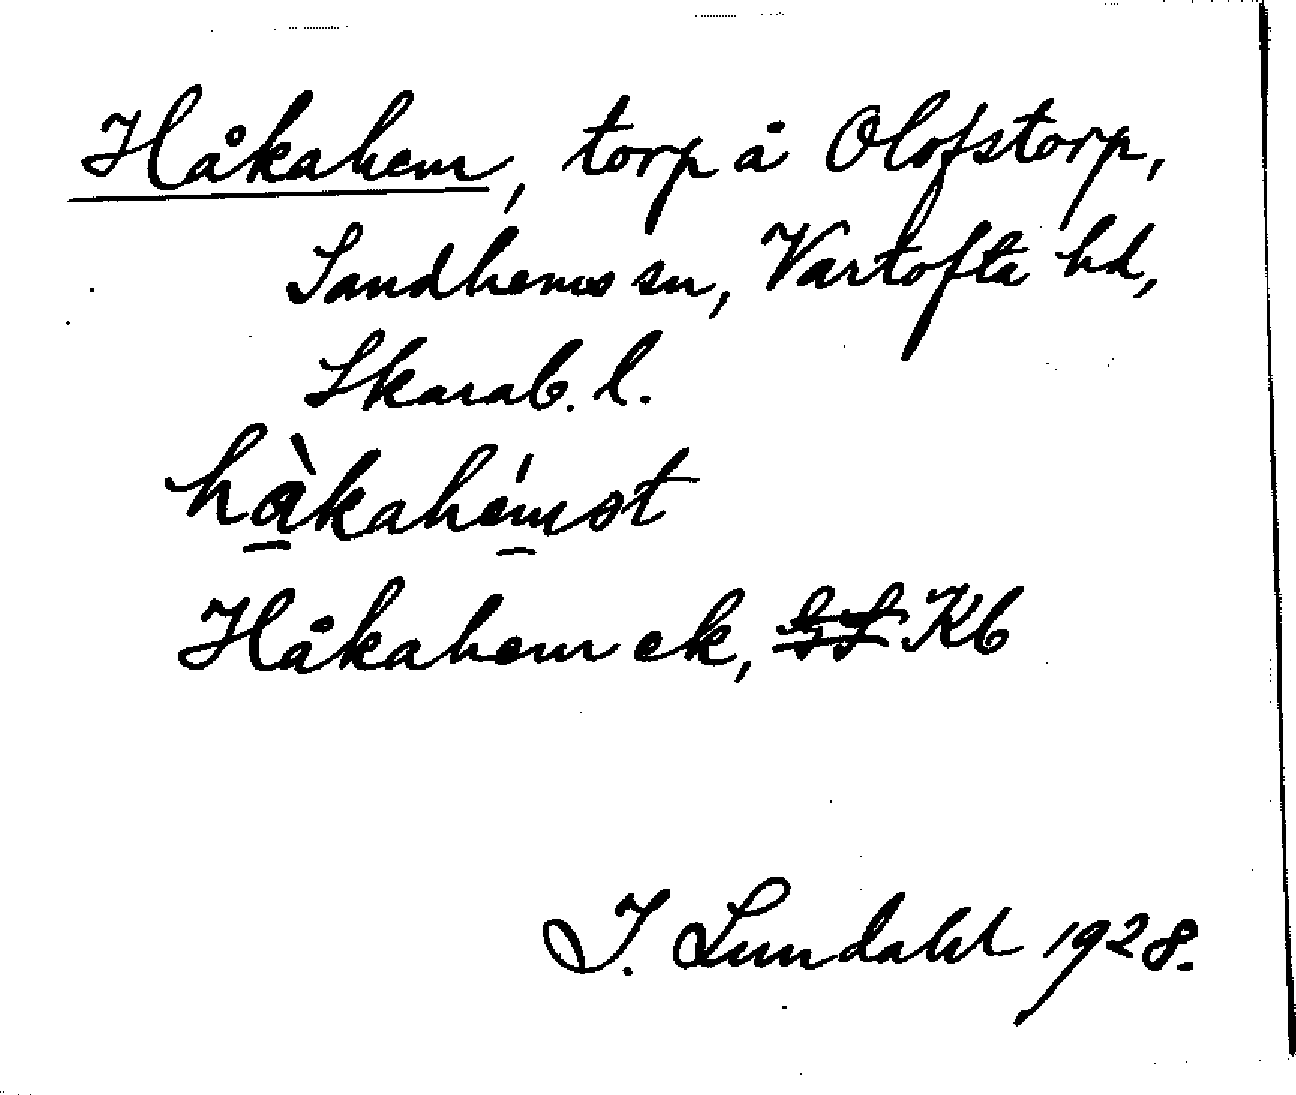 Håkahem, torp å Olofstorp,
Sandhems sn, Vartofta hd,
Skarab. l.
hàkahémst
Håkahem ek, Kb
I. Lundahl 1928.